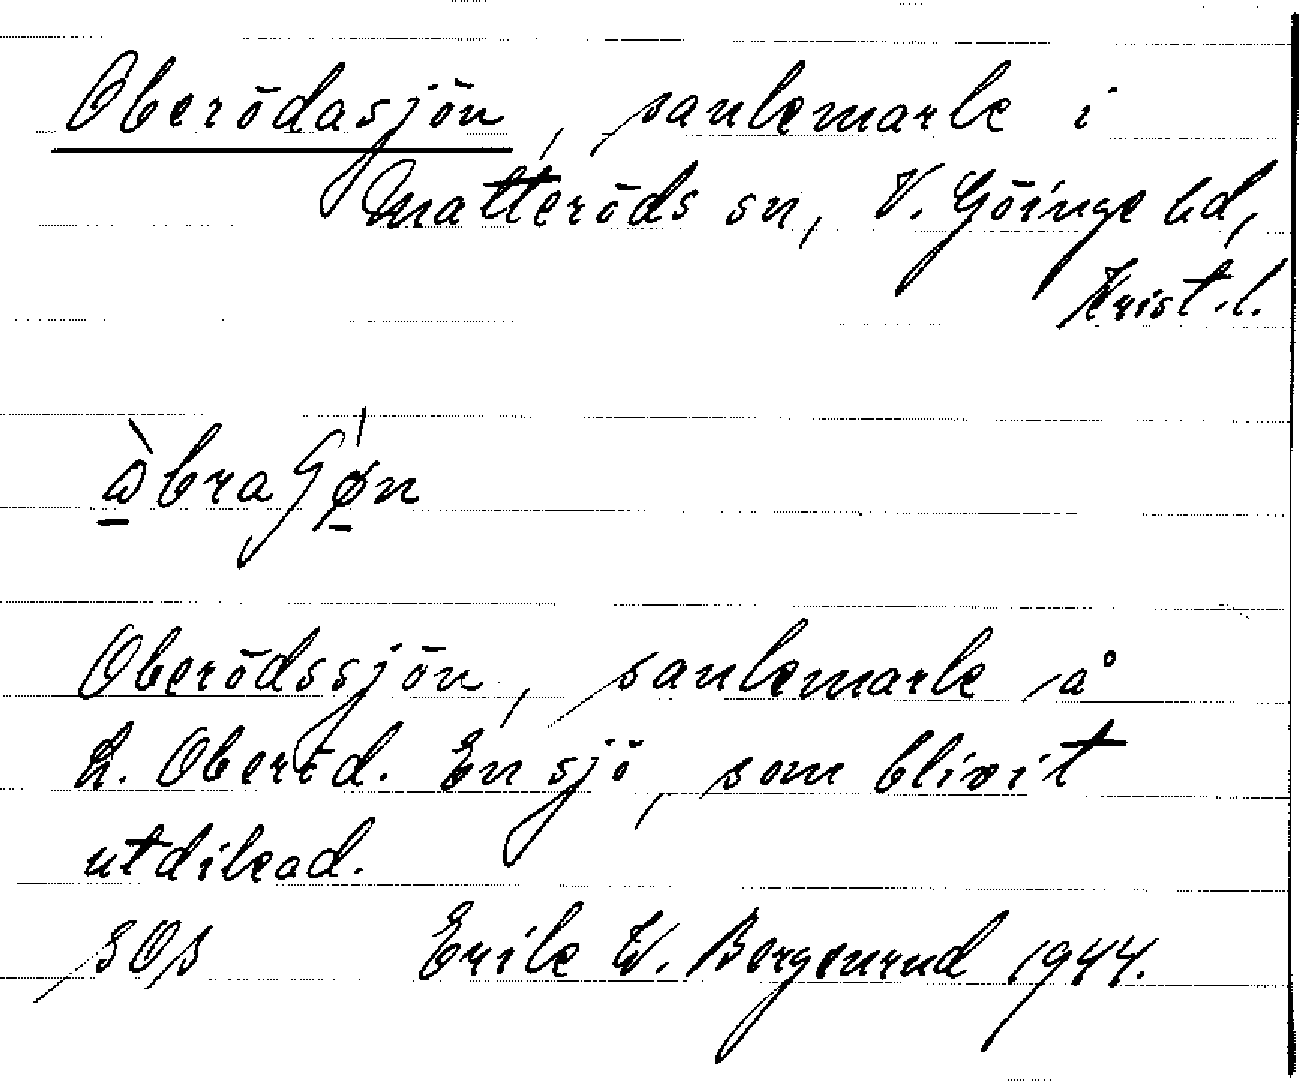 Oberödasjön, sankmark i
Matteröds sn, V. Göinge hd,
Krist.l.
Oberödssjön, sankmark å
L. Oberöd. En sjö, som blivit
utdikad.
SOS Erik W. Bergenrud 1944.